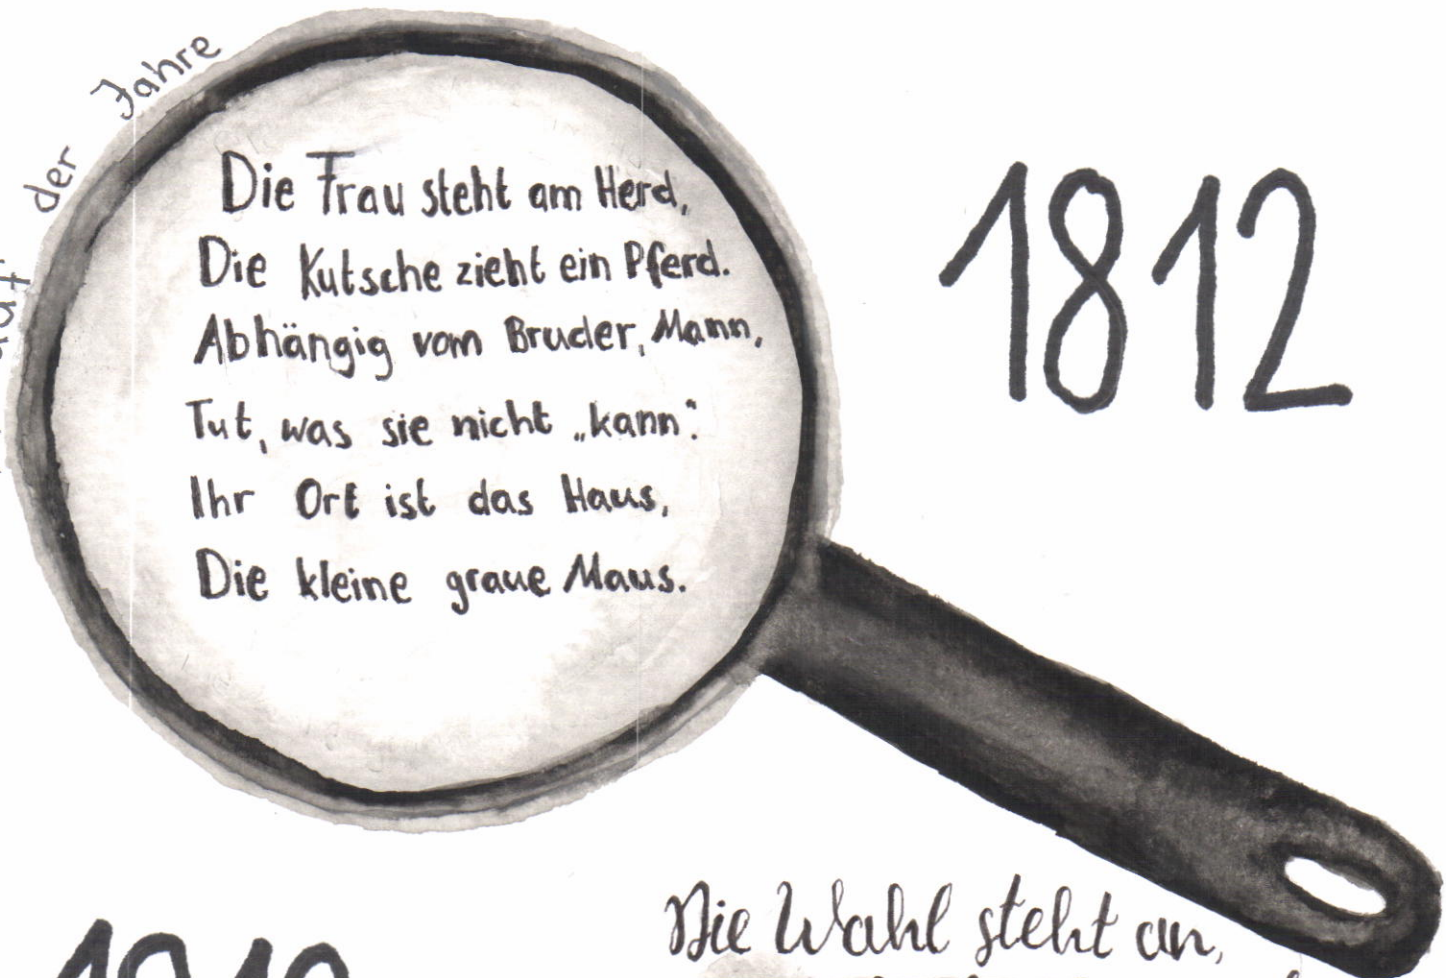 der Jahre
Die Frau steht am Herd,
Die Kutsche zieht ein Pferd.
Abhängig vom Bruder, Mann,
Tut, was sie nicht „kann“.
Ihr Ort ist das Haus,
Die kleine graue Maus.
1812
Die Wahl steht an,